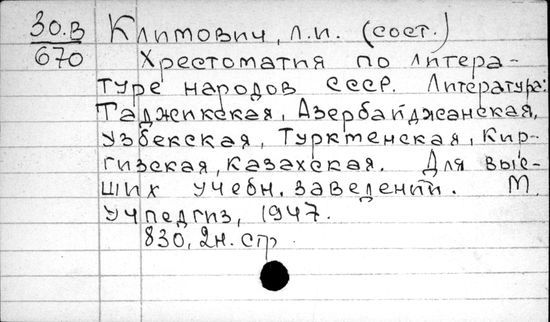 30.В Климович, Л.И. (сост.)
670 Хрестоматия по литера-
туре народов СССР. Литература:
Таджикская, Азербайджанская,
Узбекская, Туркменская, Кир-
гизская, Казахская. Для выс-
ших учебн. заведений. М.
Учпедгиз, 1947.
830, 2н. стр.